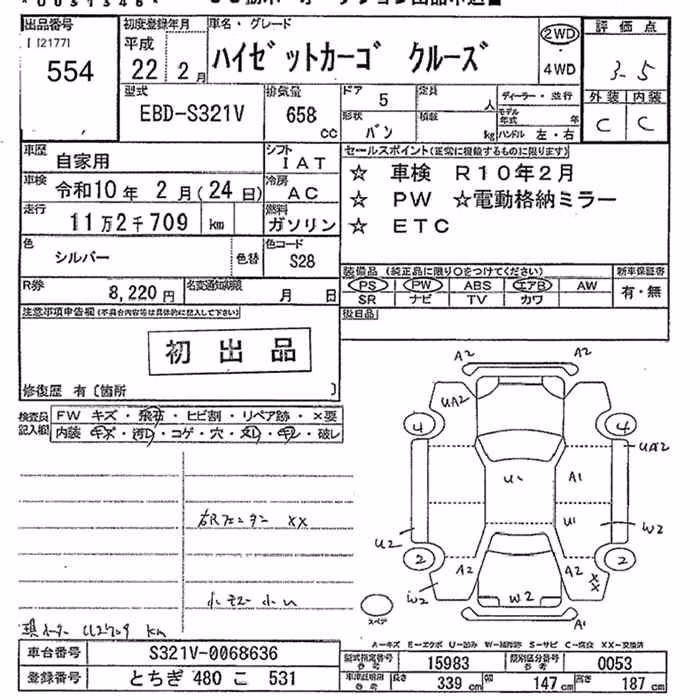 出品番号
[12177]
554
初度登録年月
平成
22年 2月
車名・グレード
ハイゼットカーゴ クルーズ
2WD
4WD
評価点
3.5
外装 内装
C C
型式
EBD-S321V
排気量
658
cc
ドア 5
定員 人
形状 バン
積載 kg
ディーラー・並行
モデル年式 年
ハンドル 左・右
車歴 自家用
シフト IAT
車検 令和10年 2月(24日)
冷房 AC
走行 11万2千709 km
燃料 ガソリン
セールスポイント(正常に機能するものに限ります)
☆ 車検 R10年2月
☆ PW ☆電動格納ミラー
☆ ETC
色 シルバー 色替
色コード S28
R券 8,220円
名変通知期限 月 日
装備品 (純正品に限り○をつけてください)
PS PW ABS エアB AW
SR ナビ TV カワ
新車保証書
有・無
後日品
注意事項申告欄(不具合内容等は具体的に記入して下さい)
初出品
修復歴 有〔箇所 〕
検査員記入欄
FW キズ・飛石・ヒビ割・リペア跡・×要
内装 キズ・汚レ・コゲ・穴・スレ・キレ・破レ
A2 A2
UA2
4 4
UA2
U A1
U1
W2
U2
2 2
A2 A2
XX
W2 W2
A1
スペア
右Rフェンダー XX
現メーター 112709 km
A-キズ E-エクボ U-凹み W-補修跡 S-サビ C-腐食 XX-交換済
車台番号 S321V-0068636
登録番号 とちぎ 480 こ 531
型式指定番号 15983
類別区分番号 0053
長さ 339 cm
幅 147 cm
高さ 187 cm